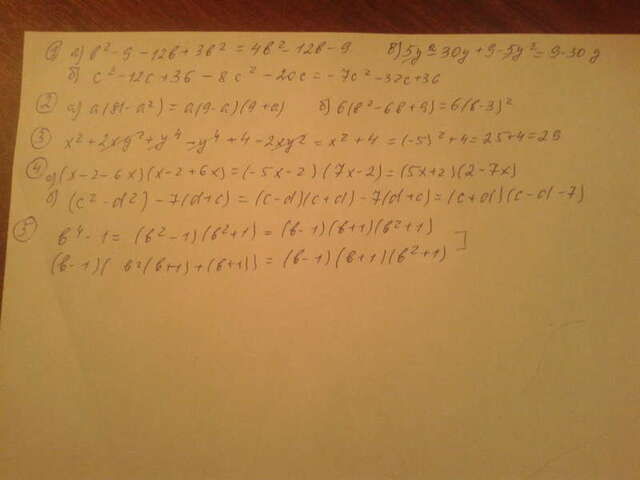 ① а) b² - 9 - 12b + 3b² = 4b² - 12b - 9 в) 5y² - 30y + 9 - 5y² = 9 - 30y
б) c² - 12c + 36 - 8c² - 20c = -7c² - 32c + 36
② а) a(81 - a²) = a(9 - a)(9 + a) б) 6(b² - 6b + 9) = 6(b - 3)²
③ x² + 2xy² + y⁴ - y⁴ + 4 - 2xy² = x² + 4 = (-5)² + 4 = 25 + 4 = 29
④ а) (x - 2 - 6x)(x - 2 + 6x) = (-5x - 2)(7x - 2) = (5x + 2)(2 - 7x)
б) (c² - d²) - 7(d + c) = (c - d)(c + d) - 7(d + c) = (c + d)(c - d - 7)
⑤ b⁴ - 1 = (b² - 1)(b² + 1) = (b - 1)(b + 1)(b² + 1)
(b - 1)(b²(b + 1) + (b + 1)) = (b - 1)(b + 1)(b² + 1) ]